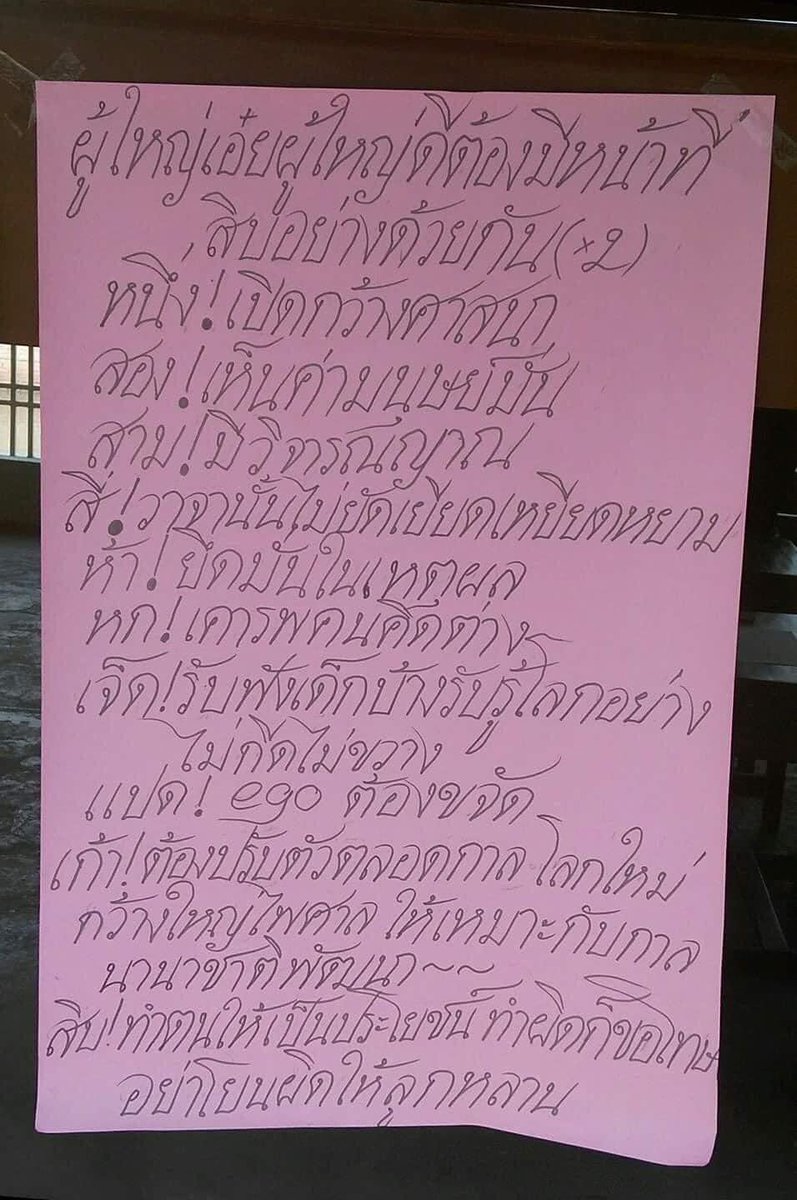 ผู้ใหญ่เอ๋ยผู้ใหญ่ดีต้องมีหน้าที่
สิบอย่างด้วยกัน(×2)
หนึ่ง!เปิดกว้างศาสนา
สอง!เห็นค่ามนุษย์มั่น
สาม!มีวิจารณญาณ
สี่!วาจานั้นไม่ยัดเยียดเหยียดหยาม
ห้า!ยึดมั่นในเหตุผล
หก!เคารพคนคิดต่าง~
เจ็ด!รับฟังเด็กบ้างรับรู้โลกอย่าง
ไม่กีดไม่ขวาง
แปด! ego ต้องขจัด
เก้า!ต้องปรับตัวตลอดกาล โลกใหม่
กว้างใหญ่ไพศาล ให้เหมาะกับกาล
นานาชาติพัฒนา~~
สิบ!ทำตนให้เป็นประโยชน์ ทำผิดก็ขอโทษ
อย่าโยนผิดให้ลูกหลาน